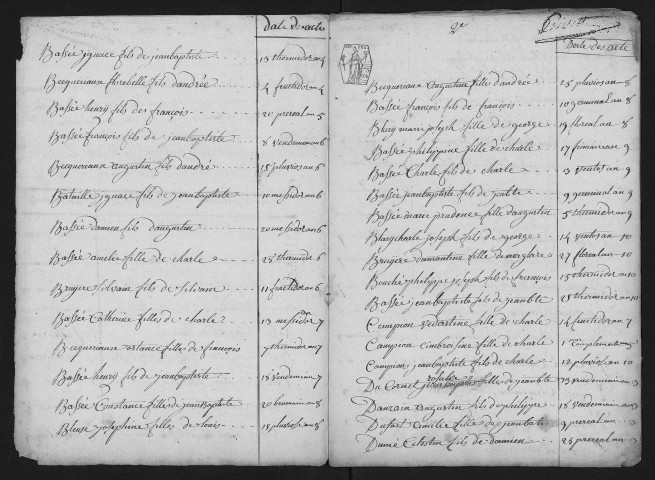 Date des acte
Bassée ignace fils de jeanbaptiste 13 thermidor an 4
Becqueriaux florebelle fils d'andrée 4 fructidor an 4
Bassée henry fils des françois 20 prereal an 5
Bassée françois fils de jeanbaptiste 8 Vendemior an 6
Becqueriaux augustin fils d'andré 25 pluvios an 6
Bataille ignace fils de jeanbaptiste 10 mesidor an 6
Bassée damien fils d'augustin 20 mesidor an 6
Bassée amelie fille de charle 28 thermidor 6
Bruyere Silvain fils de Silvain 11 fructidor an 6
Bassée Catherine filles de charle 13 messidor 7
Becqueriaux filles de françois 9 thermidor an 7
Bassée henry fils de jeanbaptiste 18 Vendemior an
Bassée Constance filles de jean Baptiste 20 brumair an 8
Bleuse josephine filles de louis 18 pluvios an 8
2e
Date des acte
Becqueriaux augustine filles d'andrée 25 pluvios an 8
Bassée françois fils de françois 10 germinal an 8
marie joseph fille de george 19 floreal an 8
Bassée philippine fille de charle 17 frimair an 9
Bassée Charle fils de charle 3 Ventos an 9
Bassée jeanbaptiste fils de 9 germinal an 9
Bassée marie prudence fille d'augustin 5 thermidor an 9
charle joseph fils de george 14 Ventos an 10
Bruyere d'amantine fille de 27 floreal an 10
Bouché philippe joseph fils de françois 15 thermidor an 10
Bassée jeanbaptiste fils de jeanbte 28 thermidor an 10
Campion Vedastine fille de charle 14 fructidor an 7
Campion Embroisine fille de charle
Campion jeanbaptiste fils de charle 12 pluvios an 10
Du Cornet rosalie filles de jeanbte 23 Vendemiair an
Danzain augustin fils de philippe 18 Vendemiair an
Dufort Emilie fille de jeanbat 9 prereal an
Dumé Celestin fils de damien 25 prereal an